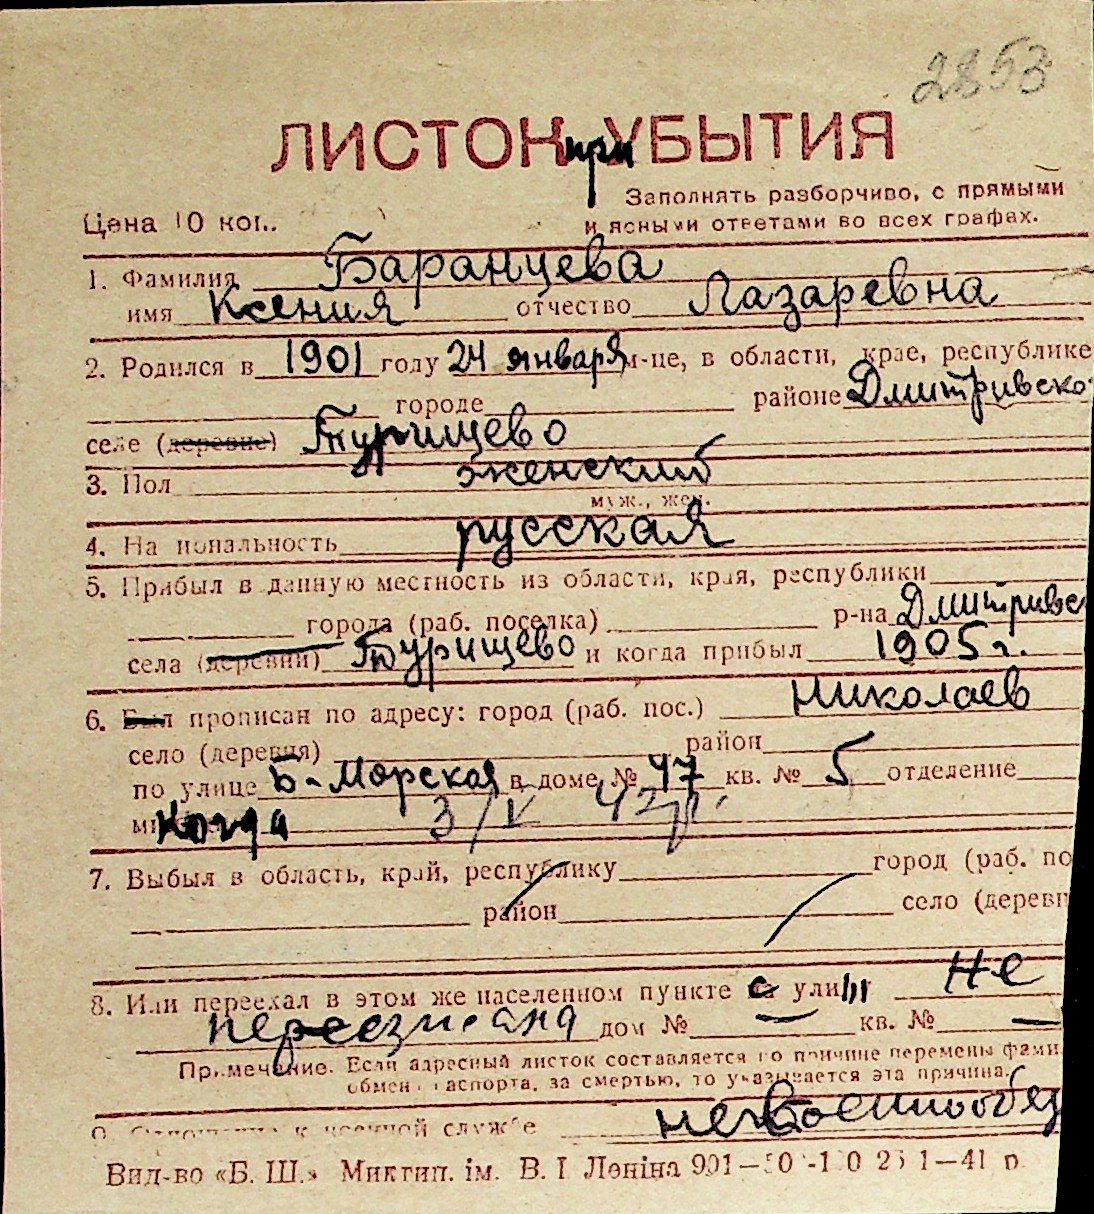 2853
ЛИСТОК при УБЫТИЯ
Заполнять разборчиво, с прямыми
Цена 10 коп. и ясными ответами во всех графах.
1. Фамилия Баранцева
имя Ксения отчество Лазаревна
2. Родился в 1901 году 24 января м-це, в области, крае, республике
городе районе Дмитривско
селе (деревне) Турищево
3. Пол женский
муж., жен.
4. Национальность русская
5. Прибыл в данную местность из области, края, республики
города (раб. поселка) р-на Дмитривс
села (деревни) Турищево и когда прибыл 1905 г.
6. Был прописан по адресу: город (раб. пос.) Николаев
село (деревня) район
по улице Б-Морская в доме № 47 кв. № 5 отделение
Когда 3/V 42 г.
7. Выбыл в область, край, республику город (раб. по
район село (деревн
8. Или переехал в этом же населенном пункте с улиц Не
дом № — кв. № —
Примечание. Если адресный листок составляется по причине перемены фами
обмен паспорта, за смертью, то указывается эта причина.
9. Отношение к военной службе невоеннообяз
Вид-во «Б. Ш.» Миктип. ім. В. І Леніна 901—50 1—41 р.